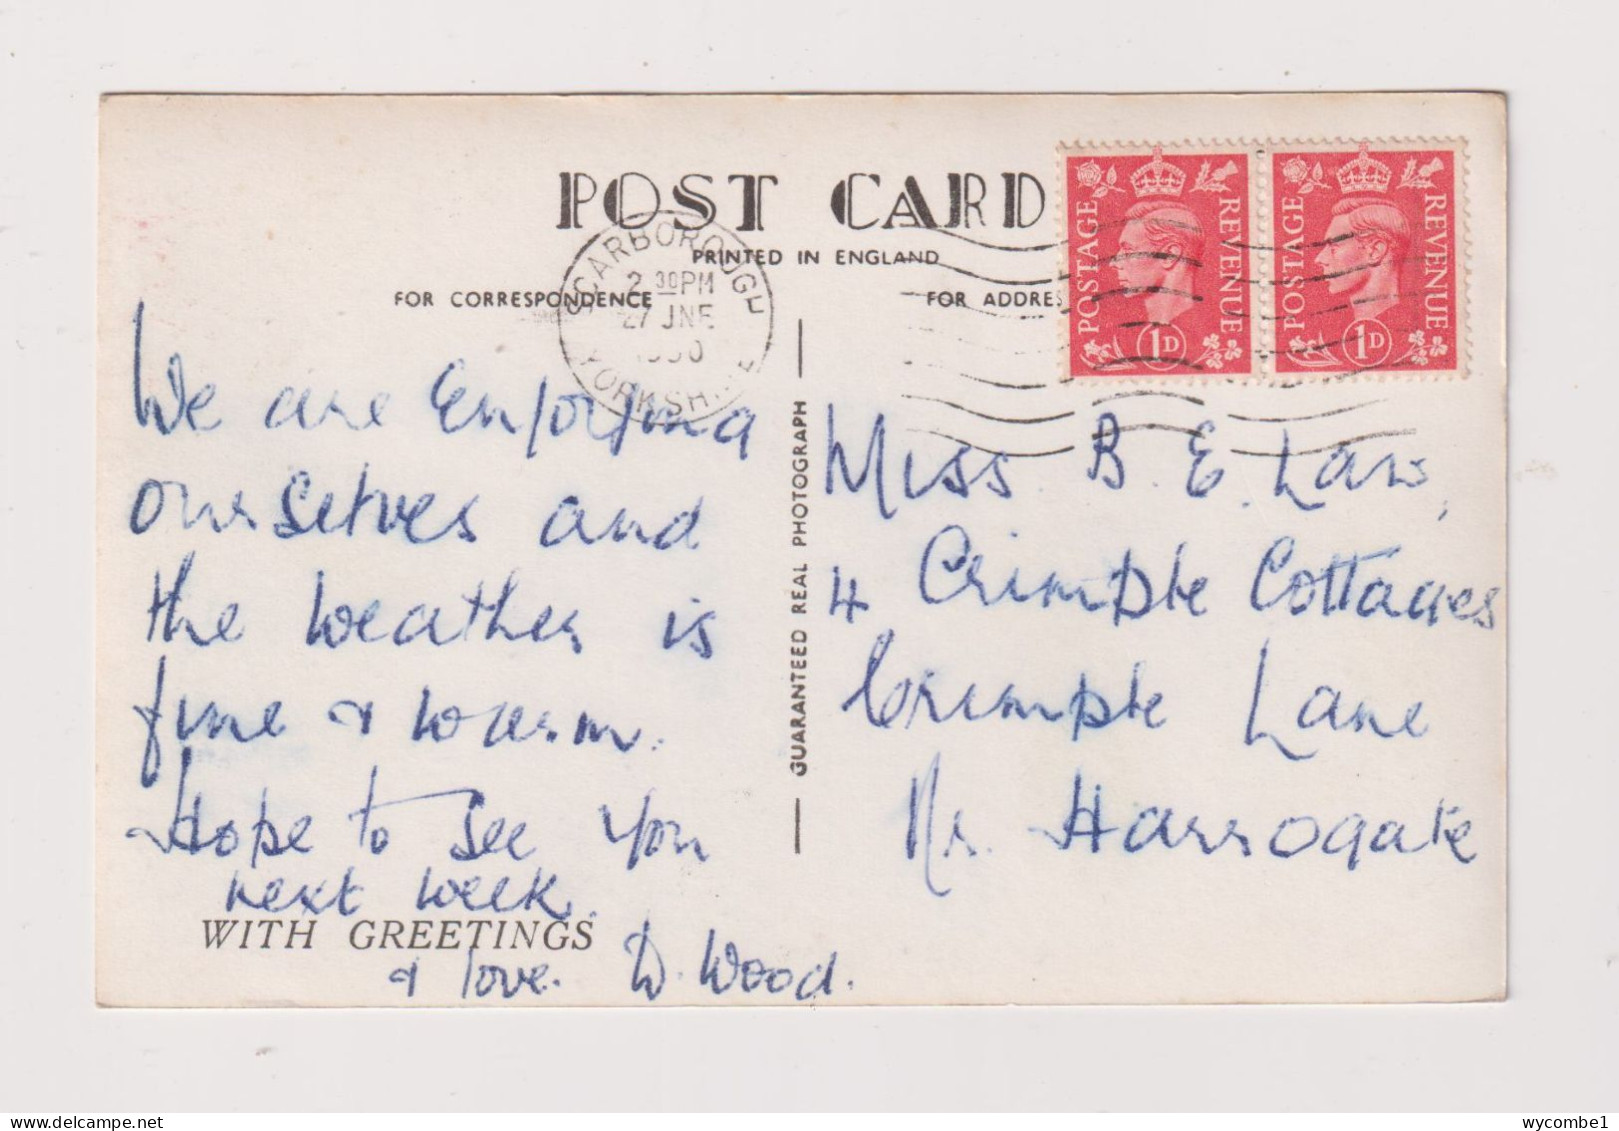 POST CARD
PRINTED IN ENGLAND
FOR CORRESPONDENCE
FOR ADDRES
SCARBOROUGH
2 30PM
27 JNE
YORKSHIRE
POSTAGE REVENUE
1D
POSTAGE REVENUE
1D
We are Enjoying
ourselves and
the weather is
fine & warm.
Hope to see you
next week.
WITH GREETINGS
& love. W. Wood.
GUARANTEED REAL PHOTOGRAPH
Miss. B. E. Law,
4 Crimple Cottages
Crimple Lane
Nr. Harrogate
wycombe1